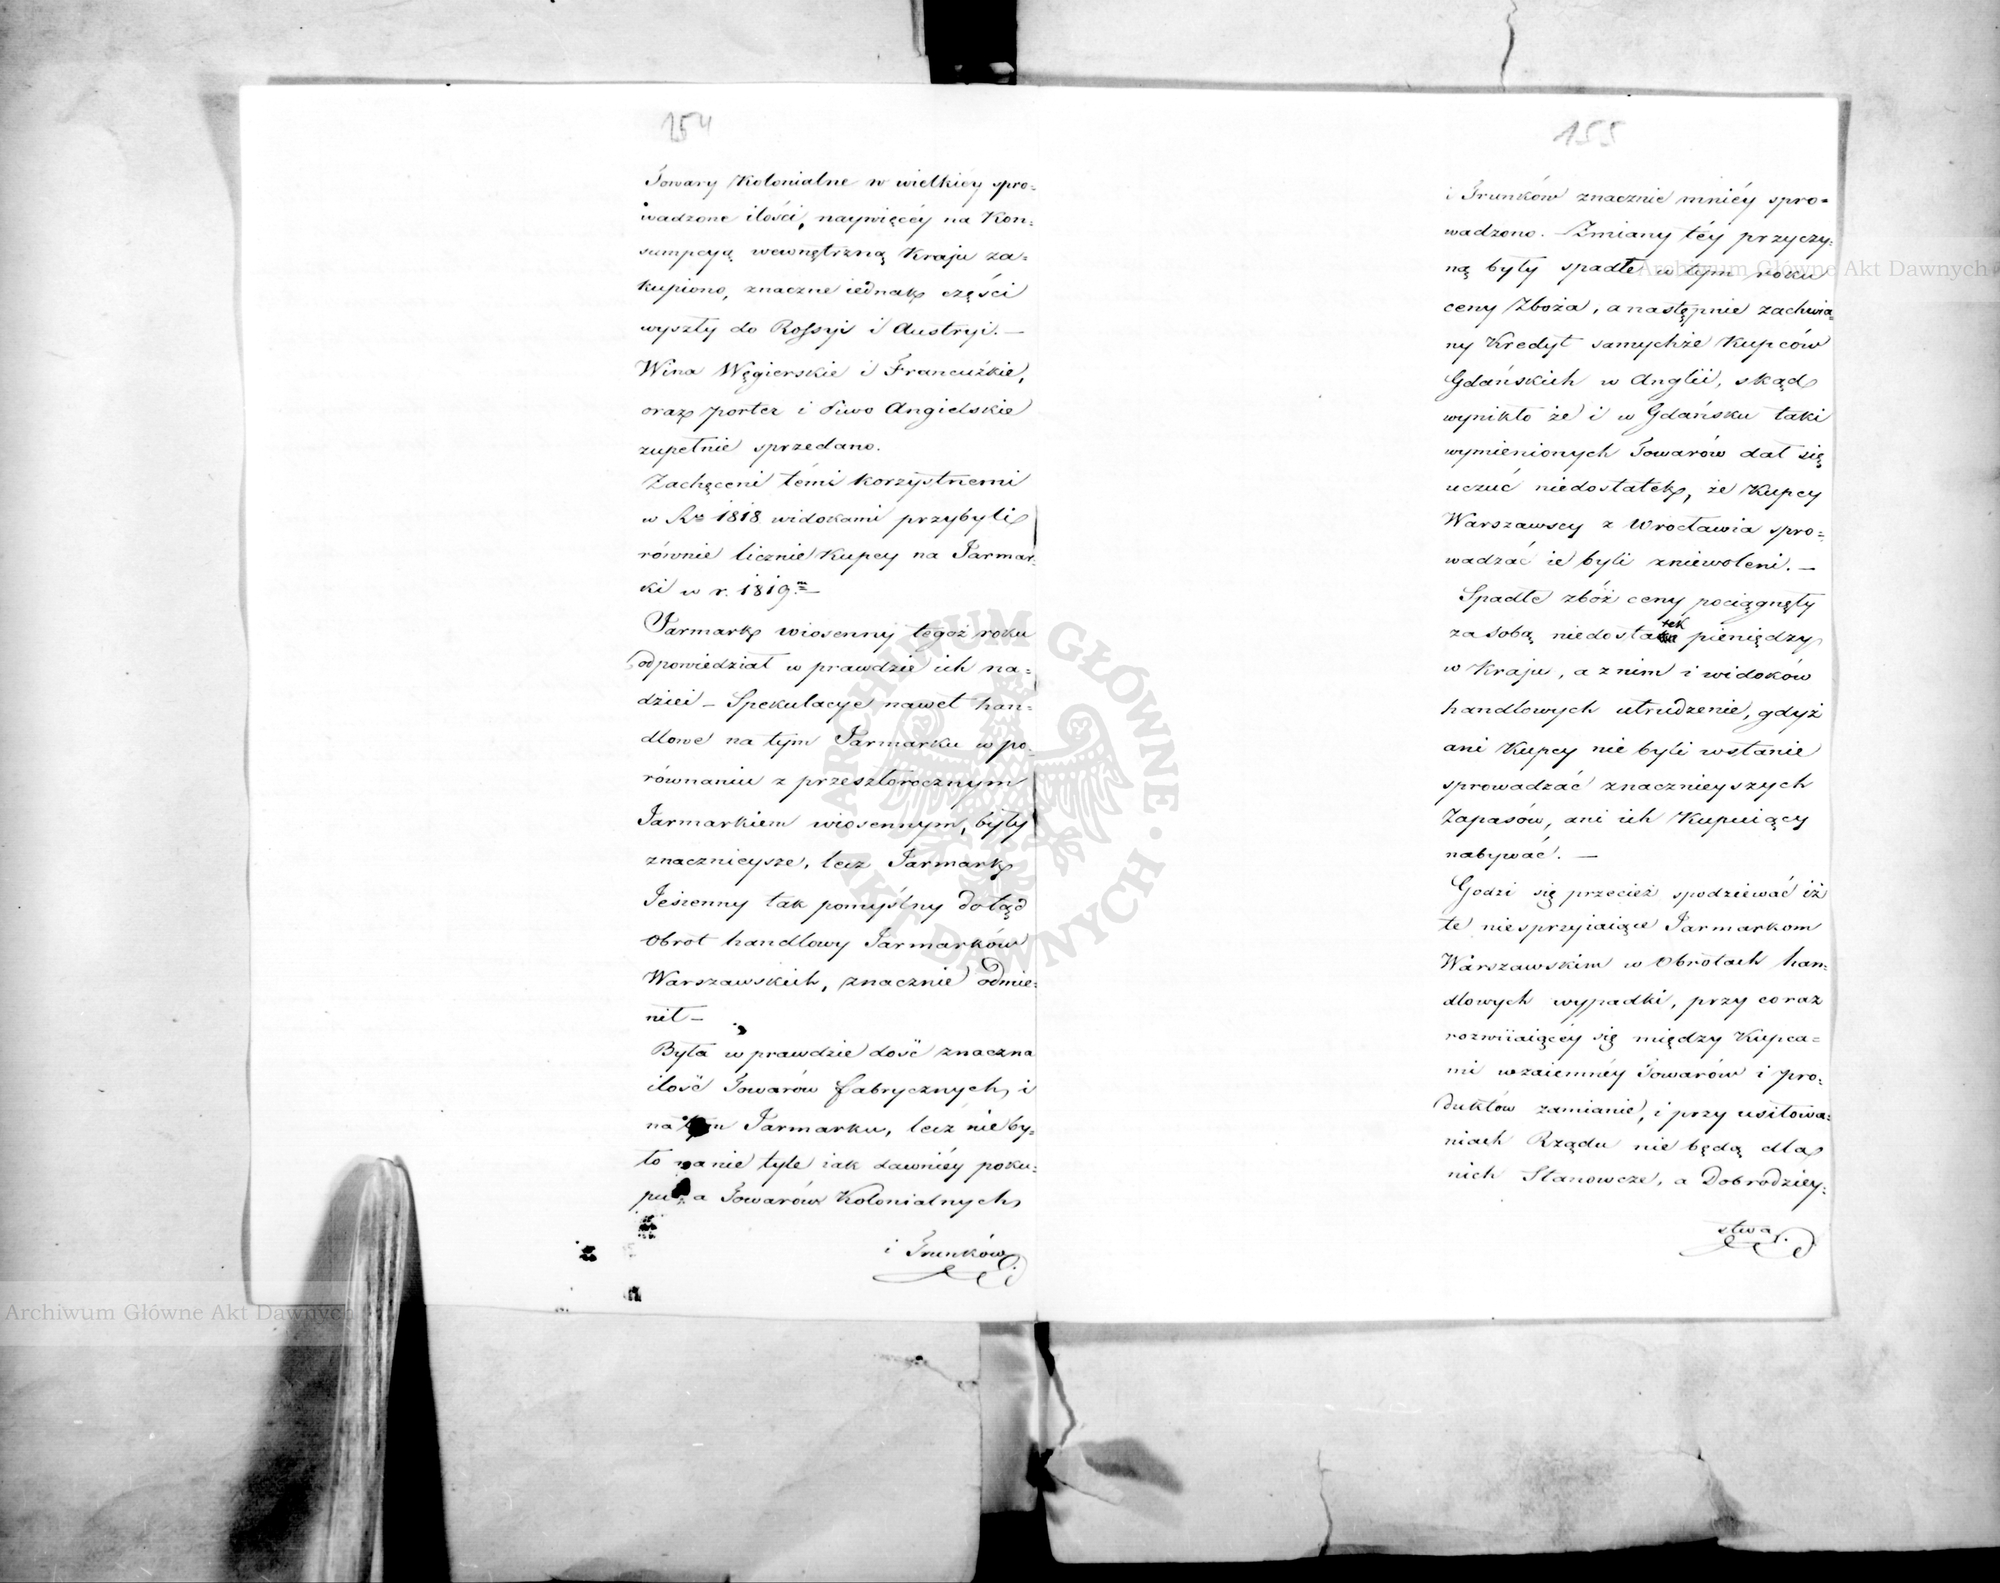 154
Towary Kolonialne w wielkiey spro=
wadzone ilości, naywięcéy na Kon=
sumpcyą wewnętrzną Kraju za=
kupiono, znaczne iednak części
wyszły do Rossyi i Austryi. —
Wina Węgierskie i Francuźkie,
oraz porter i Piwo Angielskie
zupełnie sprzedano.
Zachęceni témi korzystnemi
w Rú 1818 widokami przybyli
równie licznie Kupcy na Jarmar=
ki w r. 1819.m —
Jarmark wiosenny tegoż roku
odpowiedział w prawdzie ich na=
dziei — Spekulacye nawet han=
dlowe na tym Jarmarku w po=
równaniu z przeszłorocznym
Jarmarkiem wiosennym, były
znacznieysze, lecz Jarmark
Jesienny tak pomyślny dotąd
Obrot handlowy Jarmarków
Warszawskich, znacznie odmie=
nił —
Była w prawdzie dość znaczna
ilość Towarów fabrycznych, i
na tym Jarmarku, lecz nie by=
ło na nie tyle iak dawniéy poku=
pu, a Towarów Kolonialnych
i Trunków
155
i Trunków znacznie mniéy spro=
wadzono. — Zmiany téy przyczy=
ną były spadłe w tym roku
ceny Zboża, a następnie zachwia=
ny Kredyt samychże Kupców
Gdańskich w Anglii, skąd
wynikło że i w Gdańsku taki
wymienionych Towarów dał się
uczuć niedostatek, że Kupcy
Warszawscy z Wrocławia spro=
wadzać ie byli zniewoleni. —
Spadłe zbóż ceny pociągnęły
za sobą niedostatek pieniędzy
w Kraju, a z nim i widoków
handlowych utrudzenie, gdyż
ani Kupcy nie byli wstanie
sprowadzać znacznieyszych
Zapasów, ani ich Kupuiący
nabywać. —
Godzi się przecież spodziewać iż
te niesprzyiaiące Jarmarkom
Warszawskim w Obrotach han=
dlowych wypadki, przy coraz
rozwiiaiącéy się między Kupca=
mi wzaiemnéy Towarów i pro=
duktów zamianie, i przy usiłowa=
niach Rządu nie będą dla
nich Stanowcze, a Dobrodziey=
stwa
ARCHIWUM GŁÓWNE AKT DAWNYCH
Archiwum Główne Akt Dawnych
Archiwum Główne Akt Dawnych